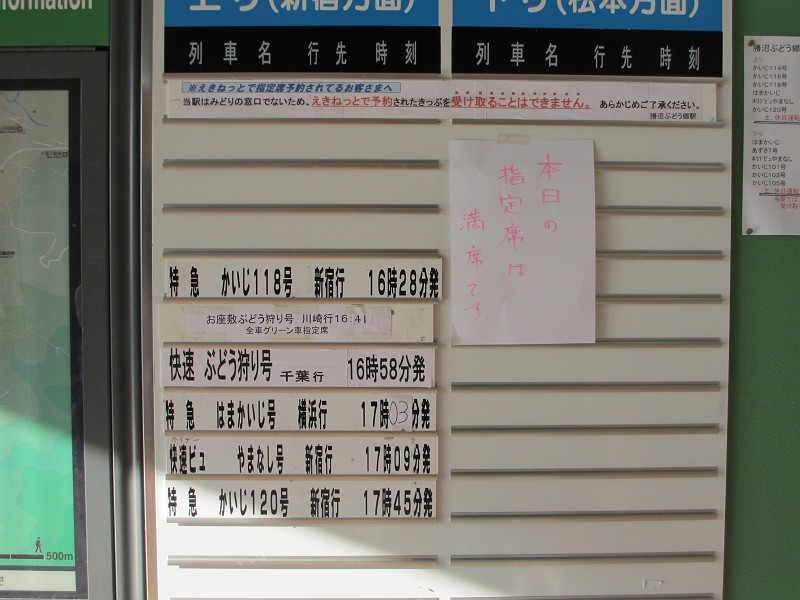 nformation
上り(新宿方面)
下り(松本方面)
列車名 行先 時刻
列車名 行先 時刻
※えきねっとで指定席予約されてるお客さまへ
当駅はみどりの窓口でないため、えきねっとで予約されたきっぷを受け取ることはできません。 あらかじめご了承ください。
勝沼ぶどう郷駅
特急 かいじ118号 新宿行 16時28分発
お座敷ぶどう狩り号 川崎行16:41
全車グリーン車指定席
快速 ぶどう狩り号 千葉行 16時58分発
特急 はまかいじ号 横浜行 17時03分発
快速ビュ やまなし号 新宿行 17時09分発
特急 かいじ120号 新宿行 17時45分発
本日の
指定席は
満席です。
勝沼ぶどう郷
上り
かいじ114号
かいじ116号
かいじ118号
はまかいじ
かいじ120号
土、休日運転
下り
はまかいじ
あずさ7号
かいじ101号
かいじ103号
かいじ105号
土、休日運転
500m